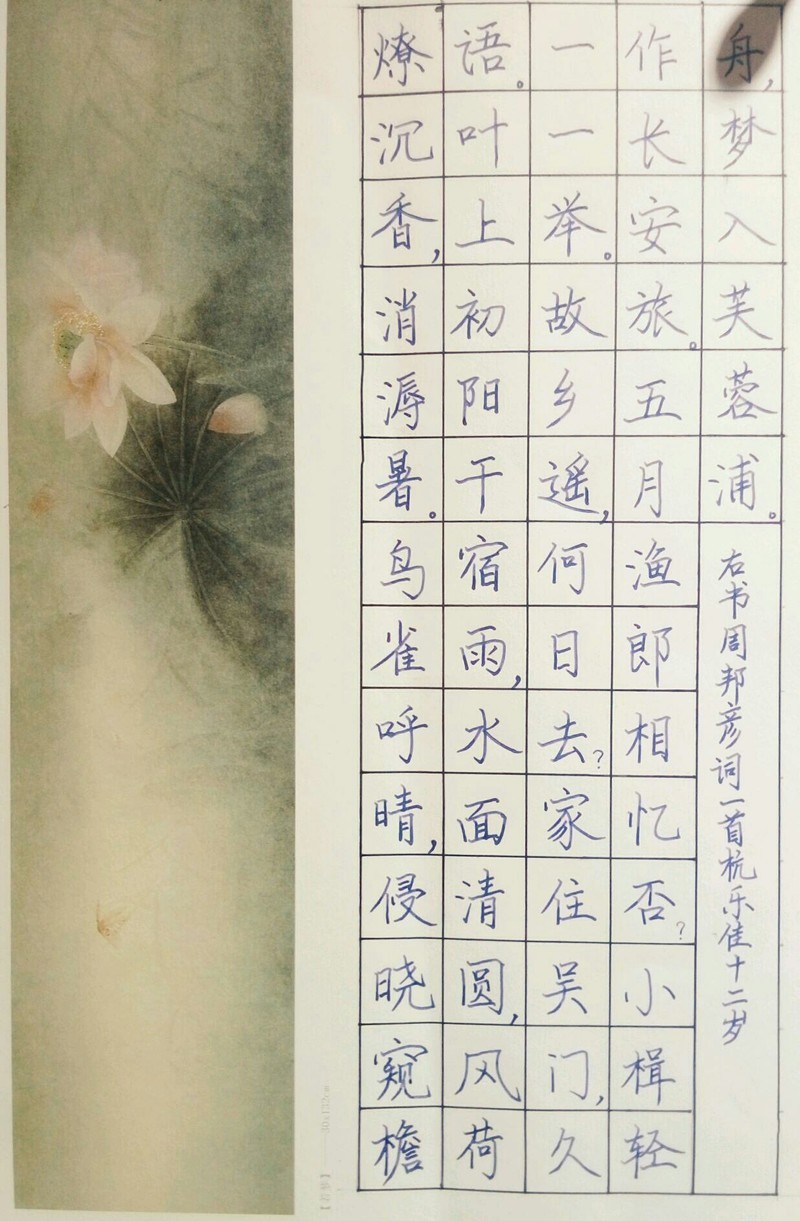 燎沉香，消溽暑。鸟雀呼晴，侵晓窥檐
语。叶上初阳干宿雨，水面清圆，风荷
一一举。故乡遥，何日去？家住吴门，久
作长安旅。五月渔郎相忆否？小楫轻
舟，梦入芙蓉浦。
右书周邦彦词一首杭乐佳十二岁